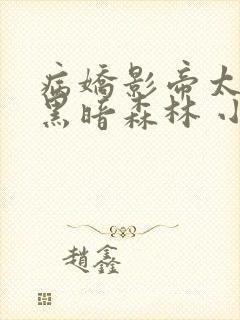 病嬌影帝太
黑暗森林 小
趙鑫